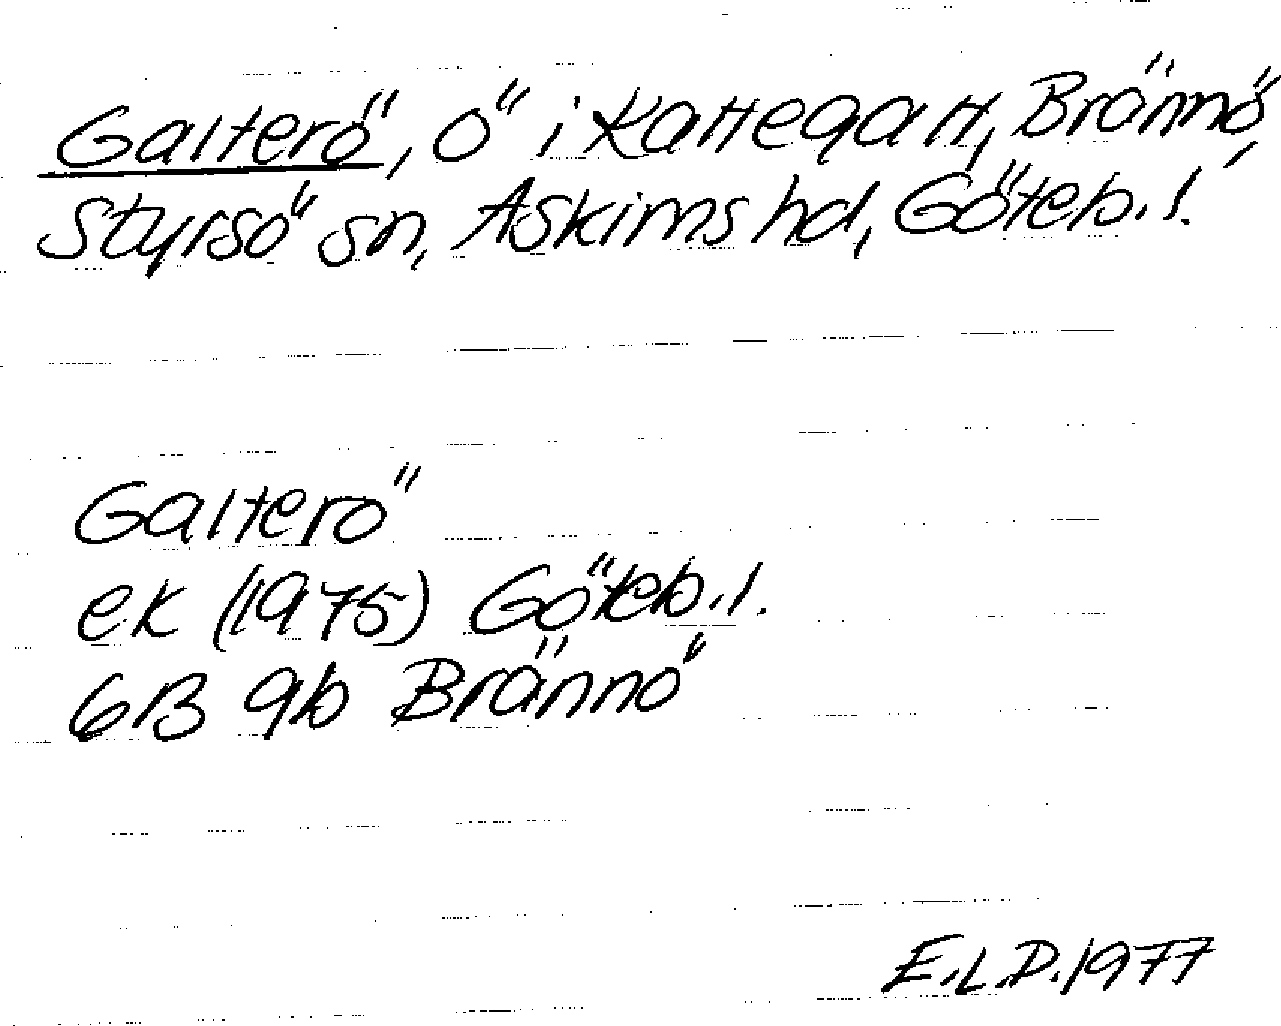 Galterö, ö i Kattegatt, Brännö,
Styrsö sn, Askims hd, Göteb. l.
Galterö
ek (1975) Göteb. l.
6B 9b Brännö
E.L.D. 1977